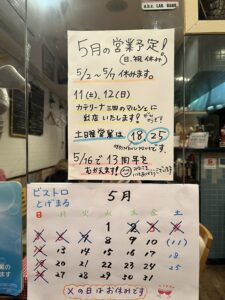 5月の営業予定!
(日、祝休み。)
5/2～5/7 休みます。
11(土)、12(日)
カテリーナ三田のマルシェに
出店いたします!
土曜営業は 18, 25
5/16で13周年を
むかえます!
ビストロ
とげまる
5月
日 月 火 水 木 金 土
1 2 3 4
5 6 7 8 9 10 (11)
12 13 14 15 16 17 18
19 20 21 22 23 24 25
26 27 28 29 30 31
×の日はお休みです